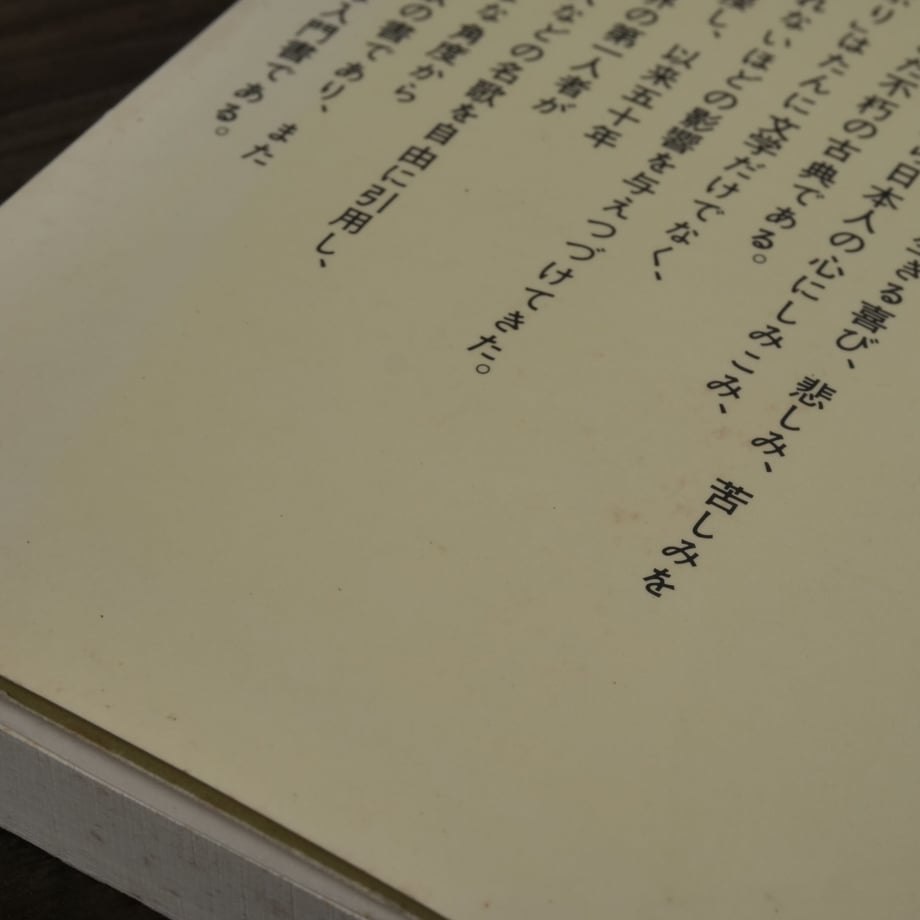 きる喜び、悲しみ、苦しみを
日本人の心にしみこみ、
た不朽の古典である。
り』はたんに文学だけでなく、
れないほどの影響を与えつづけてきた。
し、以来五十年
の第一人者が
などの名歌を自由に引用し、
な角度から
の書であり、また
入門書である。